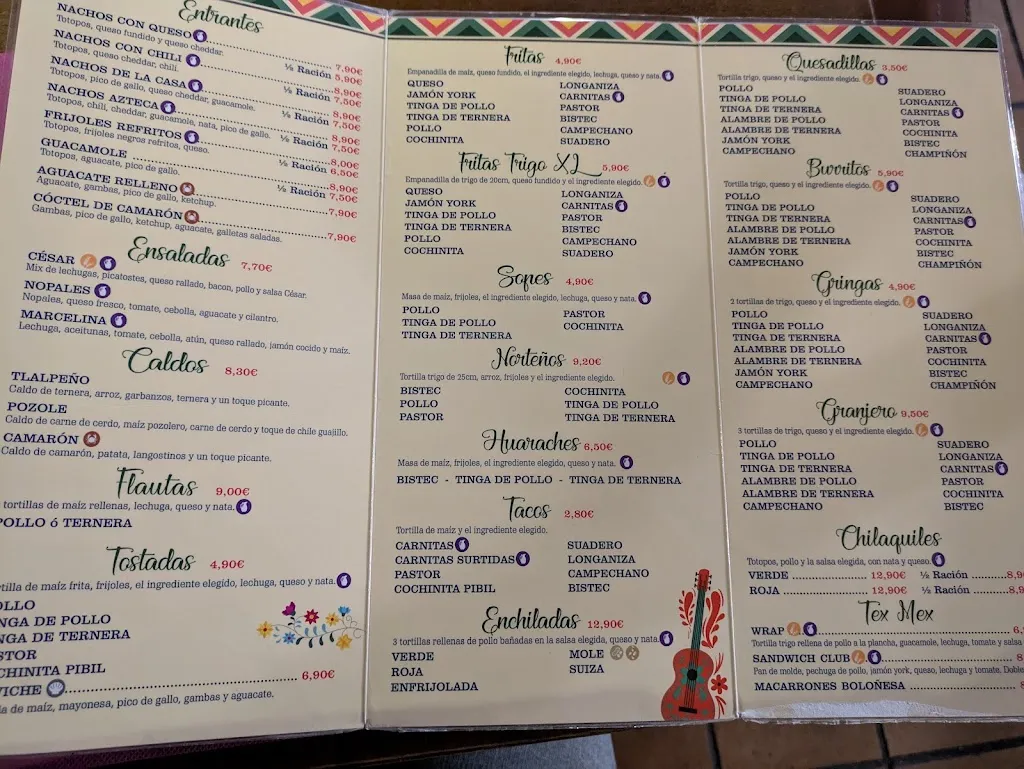 Entrantes
NACHOS CON QUESO
Totopos, queso fundido y queso cheddar. 7,90€
½ Ración 5,90€
NACHOS CON CHILI
Totopos, queso cheddar, chili. 8,90€
½ Ración 7,50€
NACHOS DE LA CASA
Totopos, pico de gallo, queso cheddar, guacamole. 8,90€
½ Ración 7,50€
NACHOS AZTECA
Totopos, chili, cheddar, guacamole, nata, pico de gallo. 8,90€
½ Ración 7,50€
FRIJOLES REFRITOS
Totopos, frijoles negros refritos, queso. 8,00€
½ Ración 6,50€
GUACAMOLE 8,90€
Totopos, aguacate, pico de gallo.
½ Ración 7,50€
AGUACATE RELLENO 7,90€
Aguacate, gambas, pico de gallo, ketchup.
CÓCTEL DE CAMARÓN 7,90€
Gambas, pico de gallo, ketchup, aguacate, galletas saladas.
Ensaladas 7,70€
CÉSAR
Mix de lechugas, picatostes, queso rallado, bacon, pollo y salsa César.
NOPALES
Nopales, queso fresco, tomate, cebolla, aguacate y cilantro.
MARCELINA
Lechuga, aceitunas, tomate, cebolla, atún, queso rallado, jamón cocido y maíz.
Caldos 8,30€
TLALPEÑO
Caldo de ternera, arroz, garbanzos, ternera y un toque picante.
POZOLE
Caldo de carne de cerdo, maíz pozolero, carne de cerdo y toque de chile guajillo.
CAMARÓN
Caldo de camarón, patata, langostinos y un toque picante.
Flautas 9,00€
tortillas de maíz rellenas, lechuga, queso y nata.
POLLO ó TERNERA
Tostadas 4,90€
rtilla de maíz frita, frijoles, el ingrediente elegido, lechuga, queso y nata.
OLLO
NGA DE POLLO
NGA DE TERNERA
STOR
CHINITA PIBIL
VICHE 6,90€
la de maíz, mayonesa, pico de gallo, gambas y aguacate.
Fritas 4,90€
Empanadilla de maíz, queso fundido, el ingrediente elegido, lechuga, queso y nata.
QUESO LONGANIZA
JAMÓN YORK CARNITAS
TINGA DE POLLO PASTOR
TINGA DE TERNERA BISTEC
POLLO CAMPECHANO
COCHINITA SUADERO
Fritas Trigo XL 5,90€
Empanadilla de trigo de 20cm, queso fundido y el ingrediente elegido.
QUESO LONGANIZA
JAMÓN YORK CARNITAS
TINGA DE POLLO PASTOR
TINGA DE TERNERA BISTEC
POLLO CAMPECHANO
COCHINITA SUADERO
Sopes 4,90€
Masa de maíz, frijoles, el ingrediente elegido, lechuga, queso y nata.
POLLO PASTOR
TINGA DE POLLO COCHINITA
TINGA DE TERNERA
Norteños 9,20€
Tortilla trigo de 25cm, arroz, frijoles y el ingrediente elegido.
BISTEC COCHINITA
POLLO TINGA DE POLLO
PASTOR TINGA DE TERNERA
Huaraches 6,50€
Masa de maíz, frijoles, el ingrediente elegido, queso y nata.
BISTEC - TINGA DE POLLO - TINGA DE TERNERA
Tacos 2,80€
Tortilla de maíz y el ingrediente elegido.
CARNITAS SUADERO
CARNITAS SURTIDAS LONGANIZA
PASTOR CAMPECHANO
COCHINITA PIBIL BISTEC
Enchiladas 12,90€
3 tortillas rellenas de pollo bañadas en la salsa elegida, queso y nata.
VERDE MOLE
ROJA SUIZA
ENFRIJOLADA
Quesadillas 3,50€
Tortilla trigo, queso y el ingrediente elegido.
POLLO SUADERO
TINGA DE POLLO LONGANIZA
TINGA DE TERNERA CARNITAS
ALAMBRE DE POLLO PASTOR
ALAMBRE DE TERNERA COCHINITA
JAMÓN YORK BISTEC
CAMPECHANO CHAMPIÑÓN
Burritos 5,90€
Tortilla trigo, queso y el ingrediente elegido.
POLLO SUADERO
TINGA DE POLLO LONGANIZA
TINGA DE TERNERA CARNITAS
ALAMBRE DE POLLO PASTOR
ALAMBRE DE TERNERA COCHINITA
JAMÓN YORK BISTEC
CAMPECHANO CHAMPIÑÓN
Gringas 4,90€
2 tortillas de trigo, queso y el ingrediente elegido.
POLLO SUADERO
TINGA DE POLLO LONGANIZA
TINGA DE TERNERA CARNITAS
ALAMBRE DE POLLO PASTOR
ALAMBRE DE TERNERA COCHINITA
JAMÓN YORK BISTEC
CAMPECHANO CHAMPIÑÓN
Granjero 9,50€
3 tortillas de trigo, queso y el ingrediente elegido.
POLLO SUADERO
TINGA DE POLLO LONGANIZA
TINGA DE TERNERA CARNITAS
ALAMBRE DE POLLO PASTOR
ALAMBRE DE TERNERA COCHINITA
CAMPECHANO BISTEC
Chilaquiles
Totopos, pollo y la salsa elegida, con nata y queso.
VERDE 12,90€ ½ Ración 8,9
ROJA 12,90€ ½ Ración 8,9
Tex Mex
WRAP 6,
Tortilla trigo rellena de pollo a la plancha, guacamole, lechuga, tomate y salsa
SANDWICH CLUB 8
Pan de molde, pechuga de pollo, jamón york, queso, lechuga y tomate. Doble
MACARRONES BOLOÑESA 8